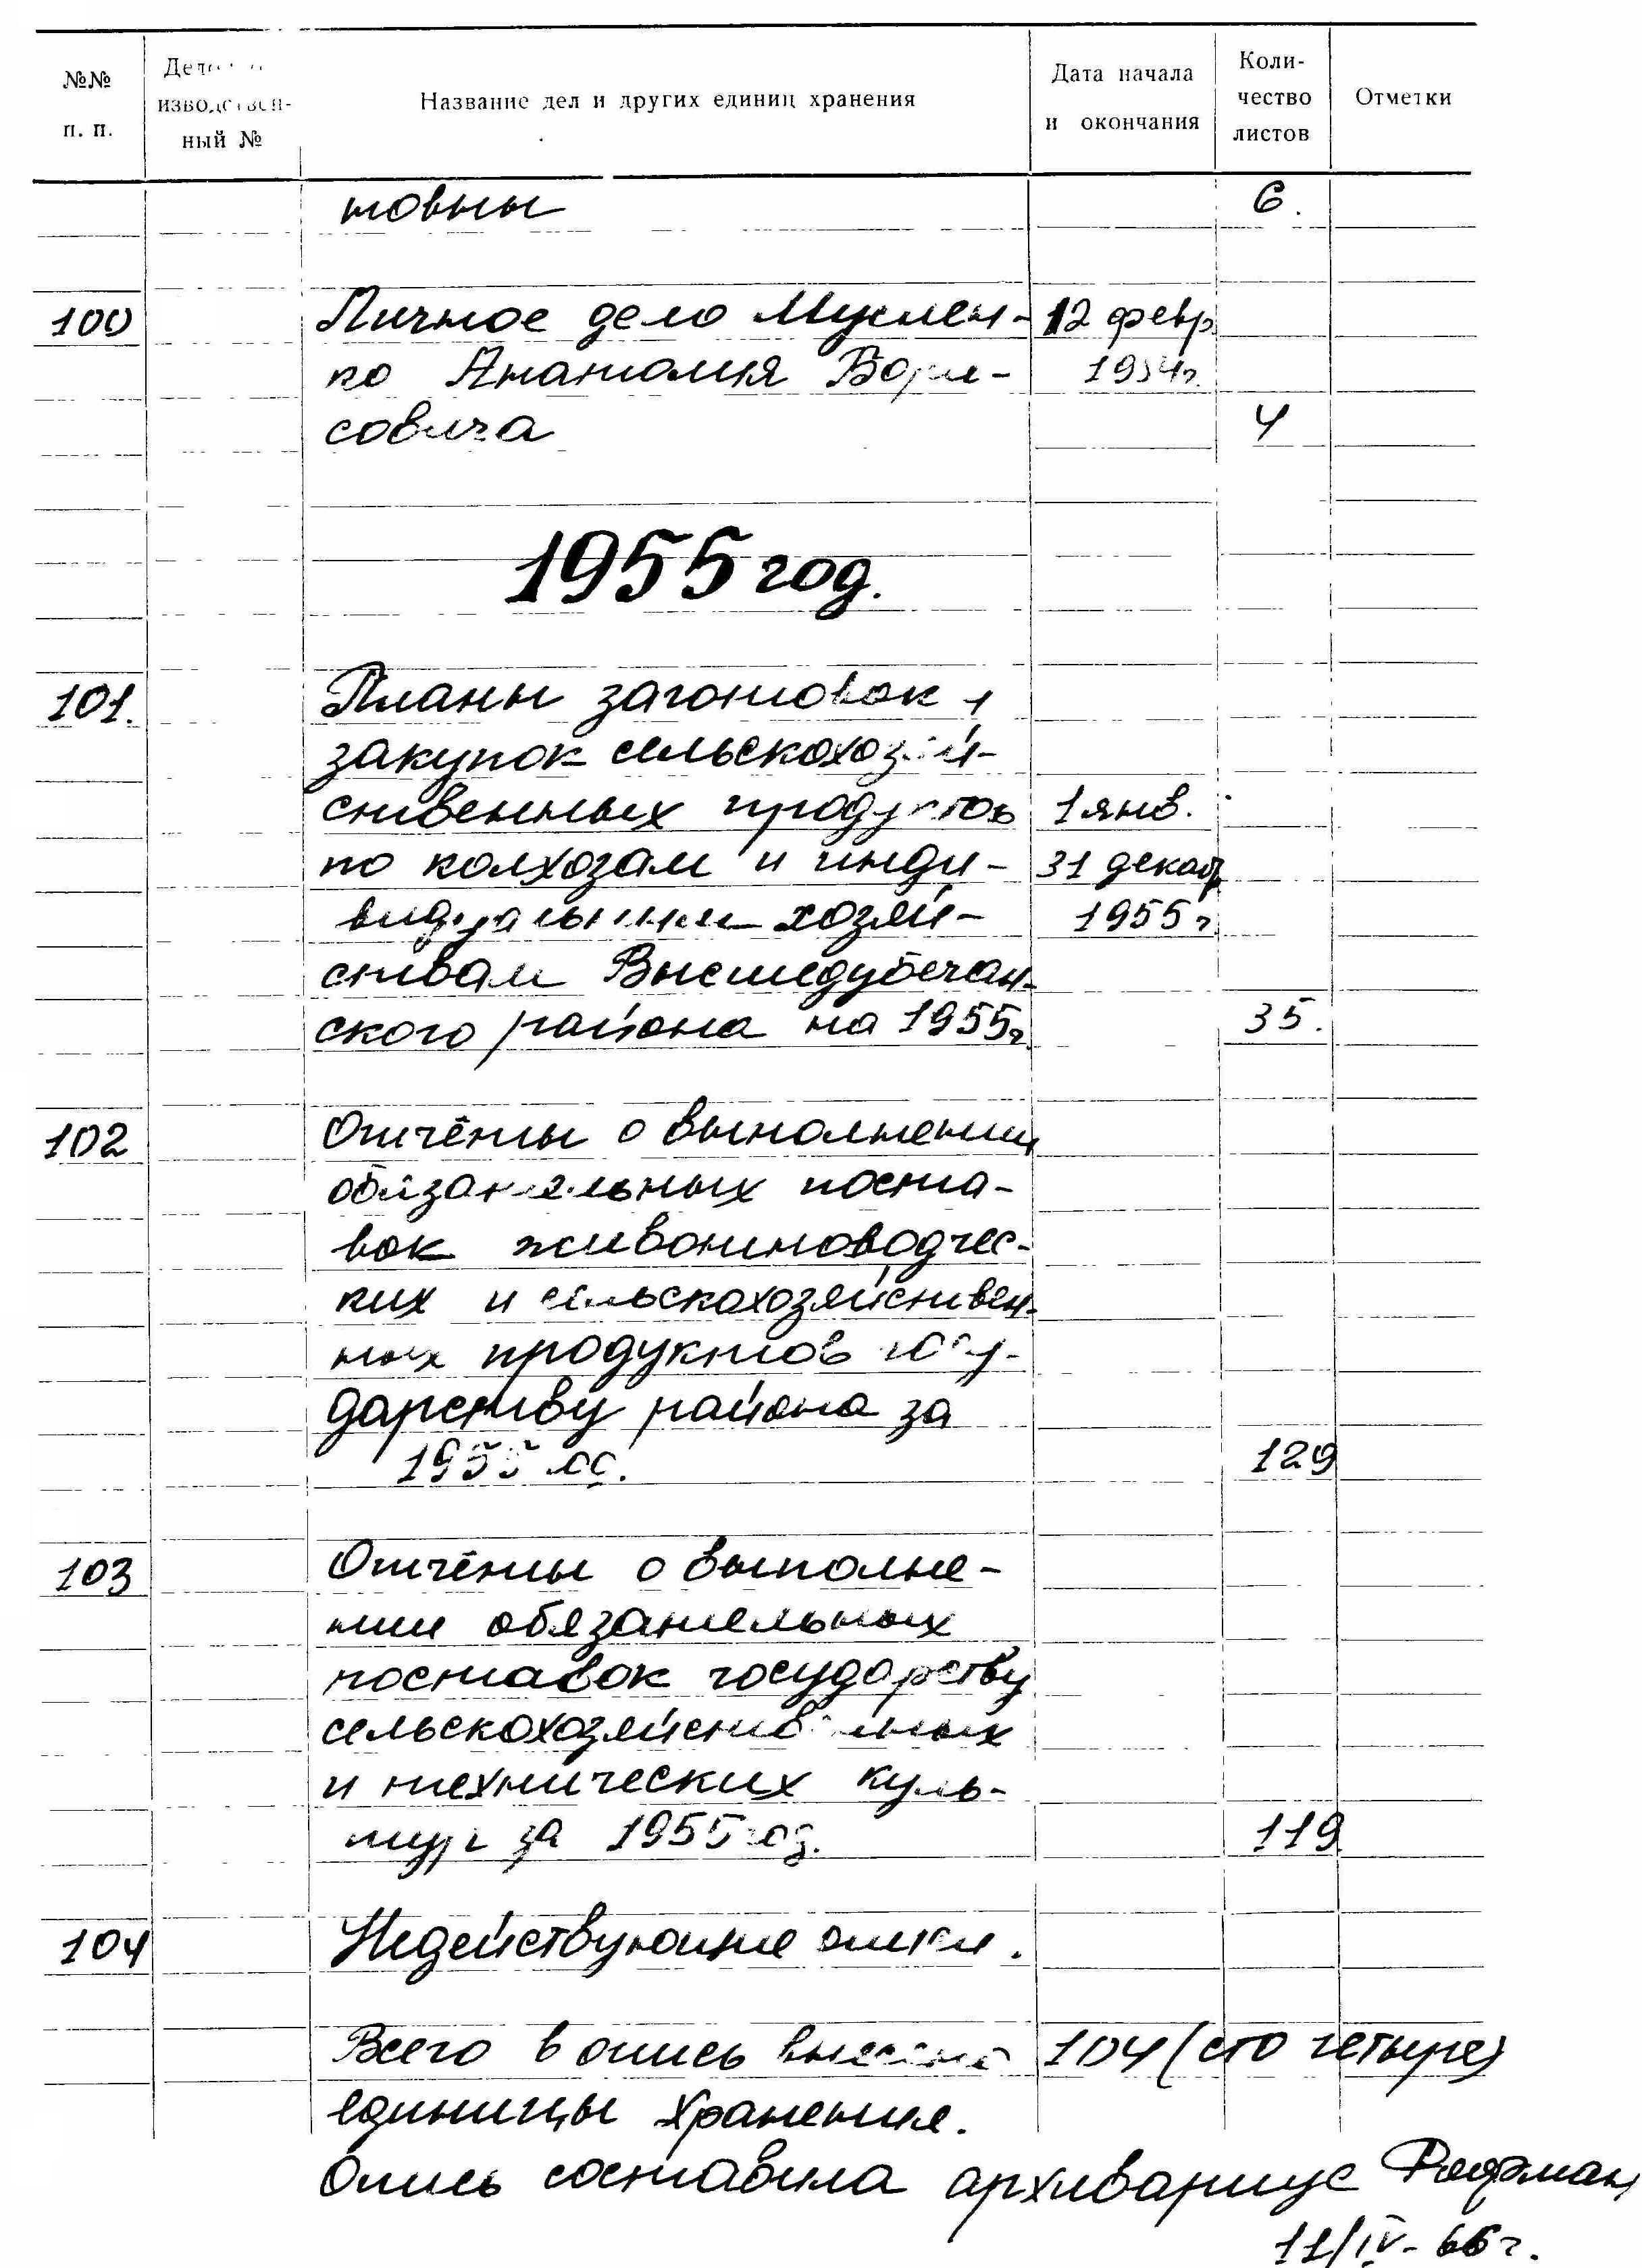 №№ п. п.
Делопроизводственный №
Название дел и других единиц хранения
Дата начала и окончания
Количество листов
Отметки
товны 6.
100 Личное дело 12 февр.
ко Анатолия Бори- 1954г.
совича 4
1955 год.
101. Планы заготовок и
закупок сельскохозяй-
ственных продуктов 1 янв.
по колхозам и инди- 31 декабр
видуальным хозяй- 1955 г.
ствам Вышедубечан-
ского района на 1955г. 35.
102 Отчёты о выполнении
обязательных поста-
вок животноводчес-
ких и сельскохозяйствен-
ных продуктов госу-
дарству района за
1955 год. 129
103 Отчёты о выполне-
нии обязательных
поставок государству
сельскохозяйственных
и технических куль-
тур за 1955 год. 119.
104 Недействующие описи.
Всего в опись внесено 104 (сто четыре)
единицы хранения.
Опись составила архивариус
11/IV-66г.